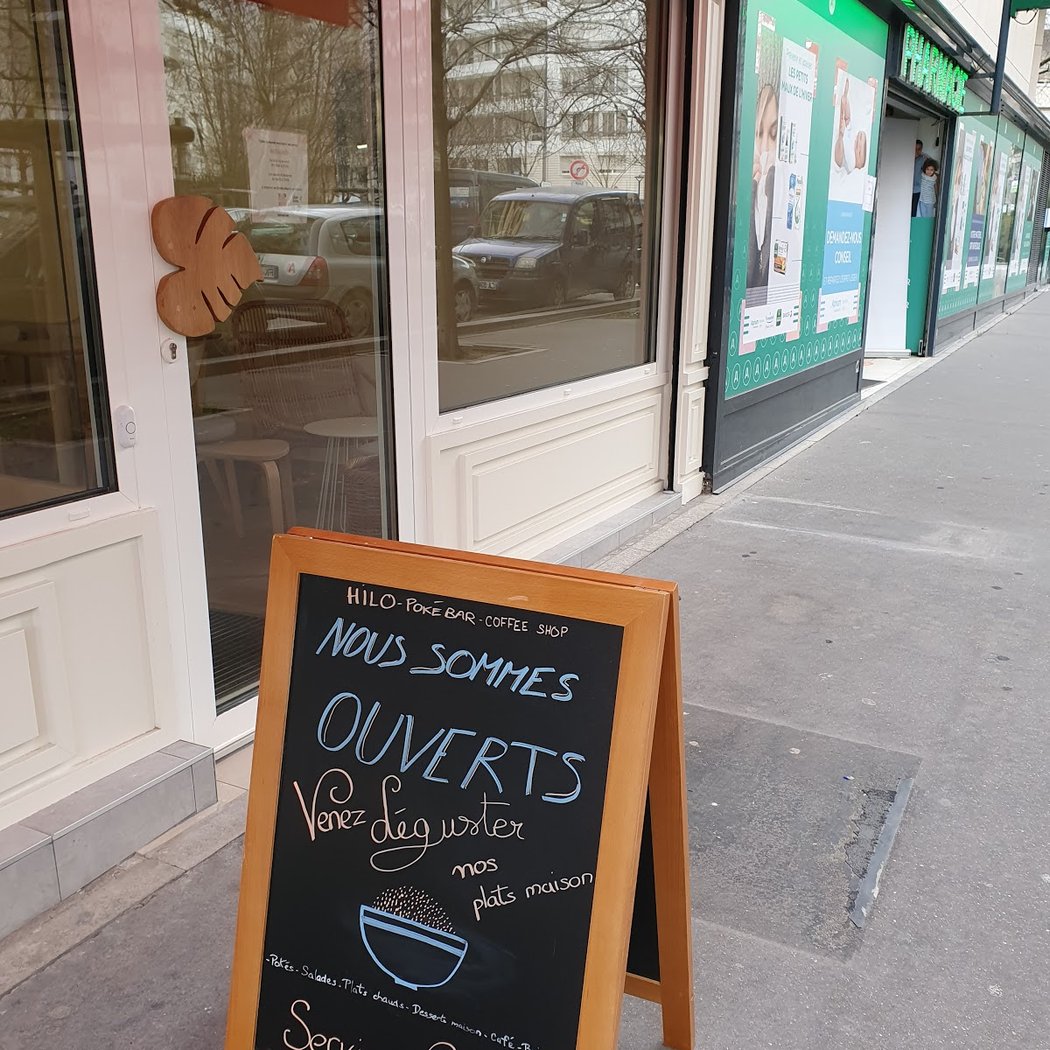 HILO - POKÉ BAR - COFFEE SHOP
NOUS SOMMES
OUVERTS
Venez déguster
nos
plats maison
- Pokés - Salades - Plats chauds - Desserts maison - Café -
PHARMACIE
LES PETITS
MAUX DE L'HIVER
DEMANDEZ-NOUS
CONSEIL